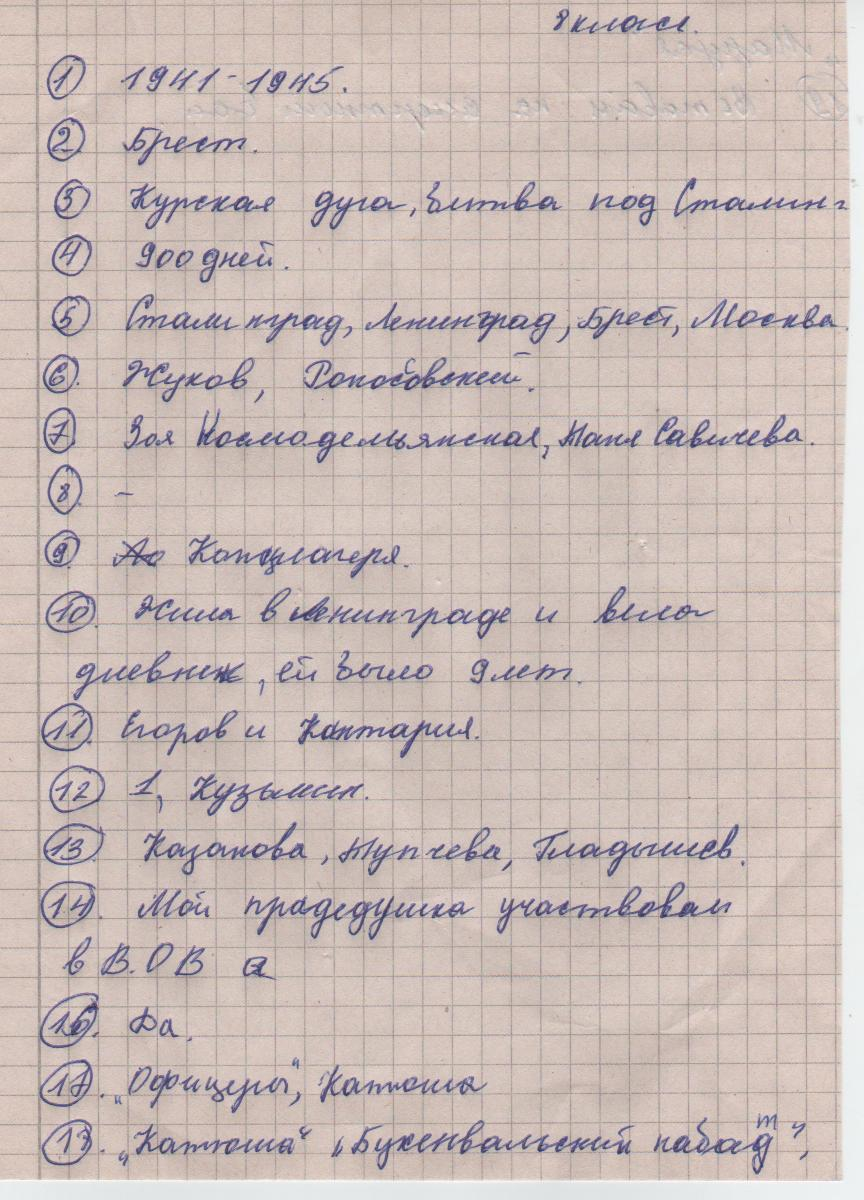 8 класс.
1 1941-1945.
2 Брест.
3 Курская дуга, битва под Сталинг
4 900 дней.
5 Сталинград, Ленинград, Брест, Москва.
6. Жуков, Рокосовский.
7. Зоя Космодемьянская, Таня Савичева.
8. –
9. Концлагеря.
10. Жила в Ленинграде и вела
дневник, ей было 9 лет.
11. Егоров и Кантария.
12 1, Кузьмин.
13. Казакова, Тупчева, Гладышев.
14. Мой прадедушка участвовал
в В.О В а
16. Да.
17. „Офицеры", Катюша
17. „Катюша" „Бухенвальский набат",